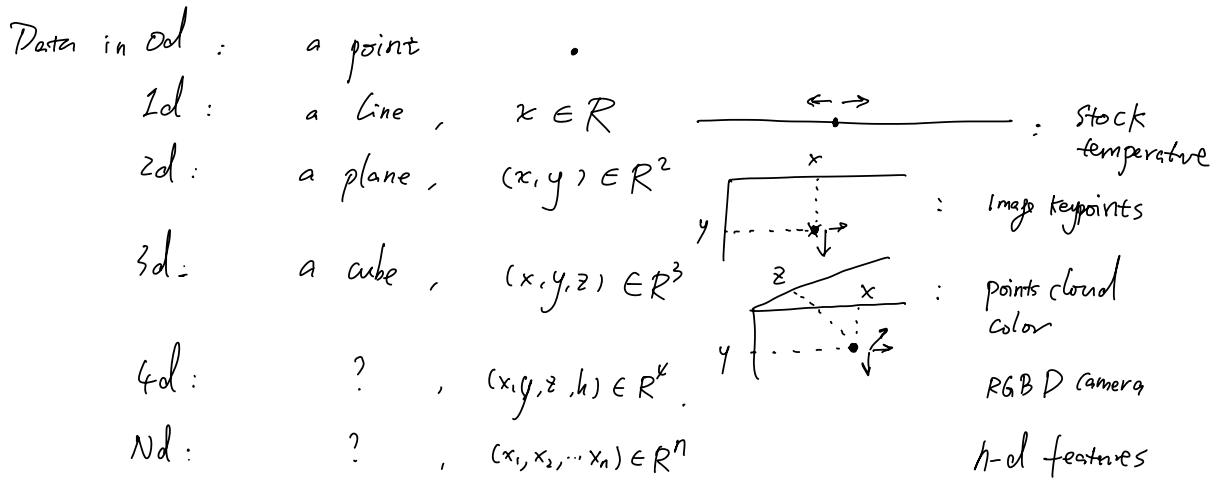 Data in 0d : a point
1d : a line , x ∈ R : stock temperatve
2d : a plane , (x, y) ∈ R² x y : Image keypoints
3d : a cube , (x, y, z) ∈ R³ z x y : points cloud color
4d : ? , (x, y, z, h) ∈ R⁴ . RGB D camera
Nd : ? , (x₁, x₂, ... xₙ) ∈ Rⁿ n-d features